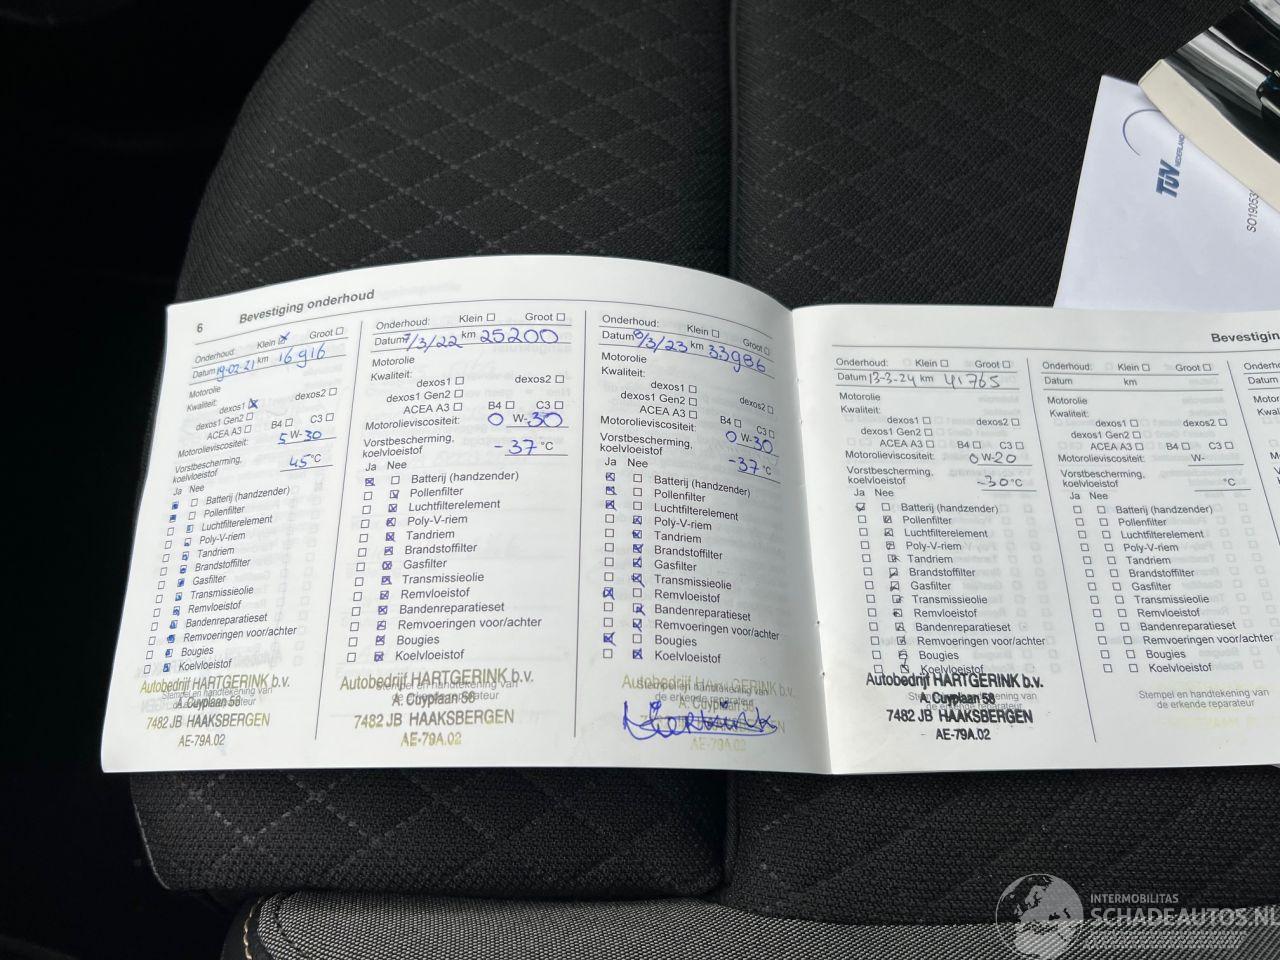 6 Bevestiging onderhoud
Onderhoud: Klein Groot
Datum 19-02-21 km 16916
Motorolie
Kwaliteit:
dexos1 dexos2
dexos1 Gen2
ACEA A3 B4 C3
Motorolieviscositeit: 5 W-30
Vorstbescherming, koelvloeistof 45 °C
Ja Nee
Batterij (handzender)
Pollenfilter
Luchtfilterelement
Poly-V-riem
Tandriem
Brandstoffilter
Gasfilter
Transmissieolie
Remvloeistof
Bandenreparatieset
Remvoeringen voor/achter
Bougies
Koelvloeistof
Autobedrijf HARTGERINK b.v.
Stempel en handtekening van
de erkende reparateur
A. Cuyplaan 58
7482 JB HAAKSBERGEN
AE-79A.02
Onderhoud: Klein Groot
Datum 7/3/22 km 25200
Motorolie
Kwaliteit:
dexos1 dexos2
dexos1 Gen2
ACEA A3 B4 C3
Motorolieviscositeit: 0 W-30
Vorstbescherming,
koelvloeistof -37 °C
Ja Nee
Batterij (handzender)
Pollenfilter
Luchtfilterelement
Poly-V-riem
Tandriem
Brandstoffilter
Gasfilter
Transmissieolie
Remvloeistof
Bandenreparatieset
Remvoeringen voor/achter
Bougies
Koelvloeistof
Autobedrijf HARTGERINK b.v.
Stempel en handtekening van
de erkende reparateur
A. Cuyplaan 58
7482 JB HAAKSBERGEN
AE-79A.02
Onderhoud: Klein Groot
Datum 8/3/23 km 33986
Motorolie
Kwaliteit:
dexos1 dexos2
dexos1 Gen2
ACEA A3 B4 C3
Motorolieviscositeit: 0 W-30
Vorstbescherming,
koelvloeistof -37 °C
Ja Nee
Batterij (handzender)
Pollenfilter
Luchtfilterelement
Poly-V-riem
Tandriem
Brandstoffilter
Gasfilter
Transmissieolie
Remvloeistof
Bandenreparatieset
Remvoeringen voor/achter
Bougies
Koelvloeistof
Autobedrijf HARTGERINK b.v.
Stempel en handtekening van
de erkende reparateur
A. Cuyplaan 58
AE-79A.02
Bevestigin
Onderhoud: Klein Groot
Datum 13-3-24 km 41765
Motorolie
Kwaliteit:
dexos1 dexos2
dexos1 Gen2
ACEA A3 B4 C3
Motorolieviscositeit: 0 W-20
Vorstbescherming,
koelvloeistof -30 °C
Ja Nee
Batterij (handzender)
Pollenfilter
Luchtfilterelement
Poly-V-riem
Tandriem
Brandstoffilter
Gasfilter
Transmissieolie
Remvloeistof
Bandenreparatieset
Remvoeringen voor/achter
Bougies
Koelvloeistof
Autobedrijf HARTGERINK b.v.
A. Cuyplaan 58
de erkende reparateur
7482 JB HAAKSBERGEN
AE-79A.02
Onderhoud: Klein Groot
Datum km
Motorolie
Kwaliteit:
dexos1 dexos2
dexos1 Gen2
ACEA A3 B4 C3
Motorolieviscositeit: W-
Vorstbescherming,
koelvloeistof °C
Ja Nee
Batterij (handzender)
Pollenfilter
Luchtfilterelement
Poly-V-riem
Tandriem
Brandstoffilter
Gasfilter
Transmissieolie
Remvloeistof
Bandenreparatieset
Remvoeringen voor/achter
Bougies
Koelvloeistof
Stempel en handtekening van
de erkende reparateur
TÜV NEDERLAND
SO19053
INTERMOBILITAS
SCHADEAUTOS.NL